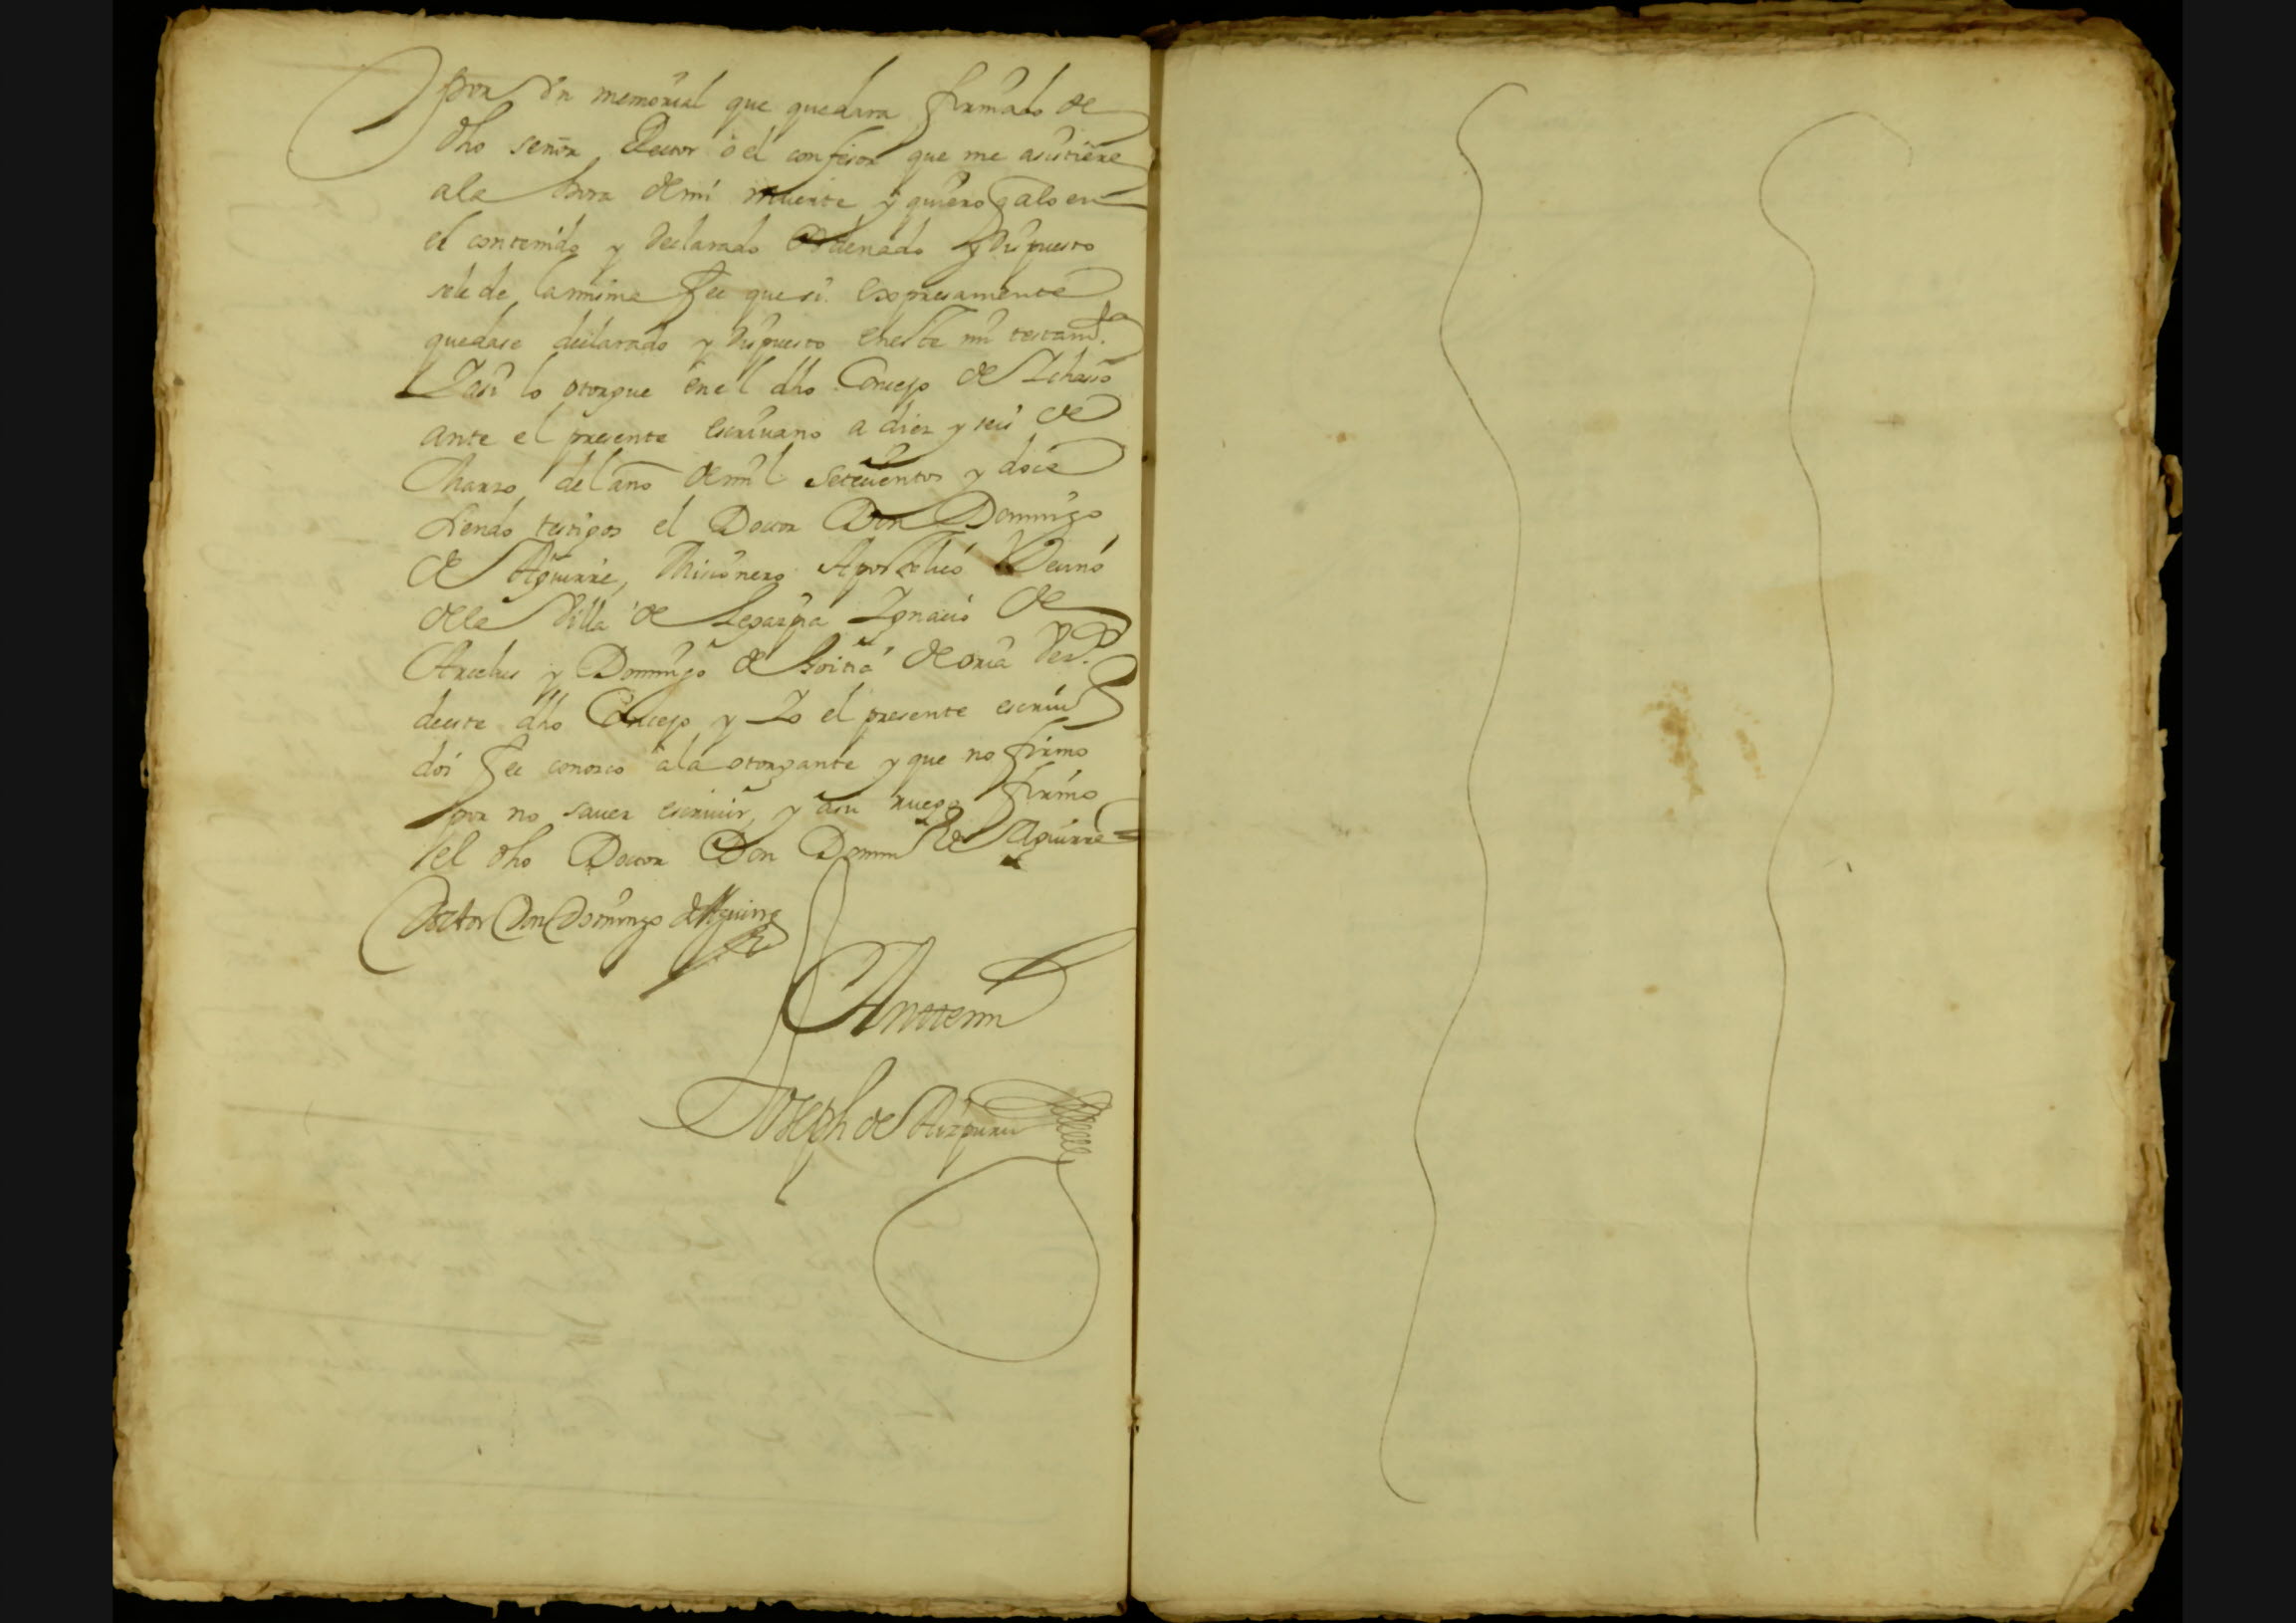 por Vn memorial que quedara firmado de
dho señor Rector o el confesor que me asistiere
a la hora de mi muerte y quiero q alo en
el contenido y declarado ordenado y dispuesto
se le de la misma fee que si expresamente
quedase declarado y dispuesto en este mi testamto
Y asi lo otorgue en el dho Concejo de Ichasso
ante el presente escriuano a diez y seis de
Marzo del año de mil setecientos y doce
siendo testigos el Doctor Don Domingo
de Aguirre, Misionero Apostolico Vecino
de la Villa de Legazpia Ignacio de
Arcelus y Domingo de de oria Vezos
de este dho Concejo, y Yo el presente escriuo
doi fee conozco a la otorgante y que no firmo
por no sauer escriuir, y a su ruego firmo
el dho Doctor Don Domin de Aguirre
Doctor Don Domingo de Aguirre
Ante mi
Joseph de Aizpuru